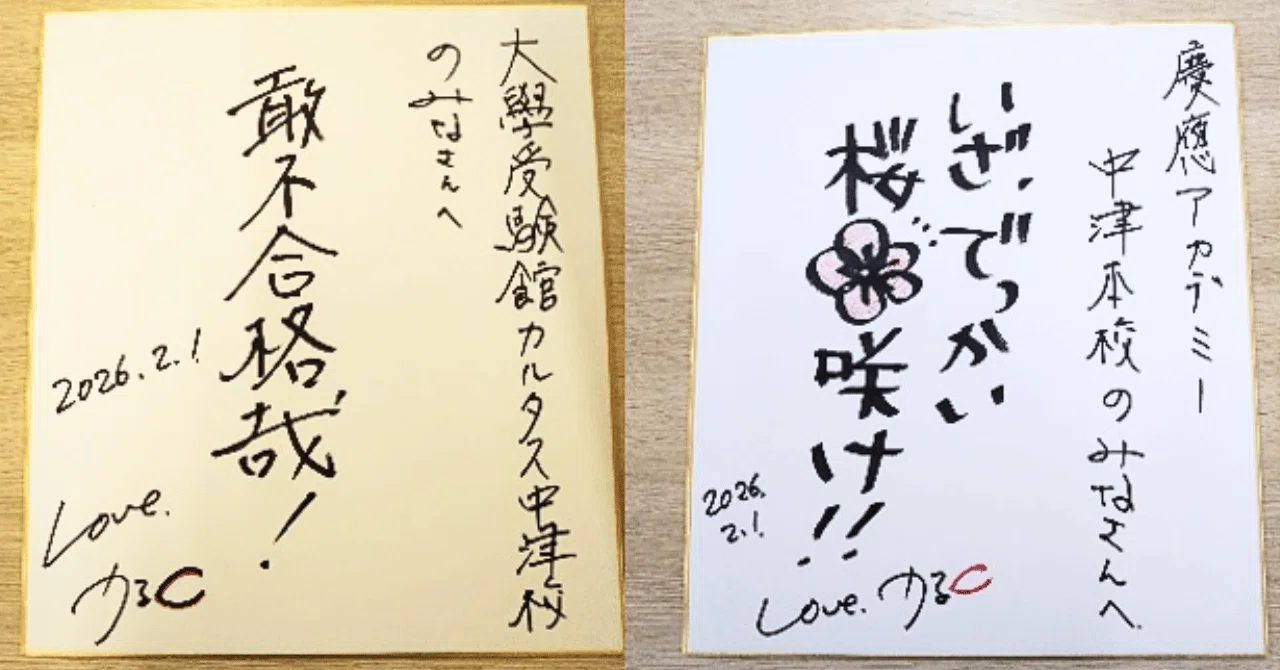 大學受験館カルタス中津校
のみなさんへ
敢不合格哉!
2026.2.1
Love.
かるC
慶應アカデミー
中津本校のみなさんへ
いざ、でっかい
桜咲け!!
2026.
2.1
Love. かるC